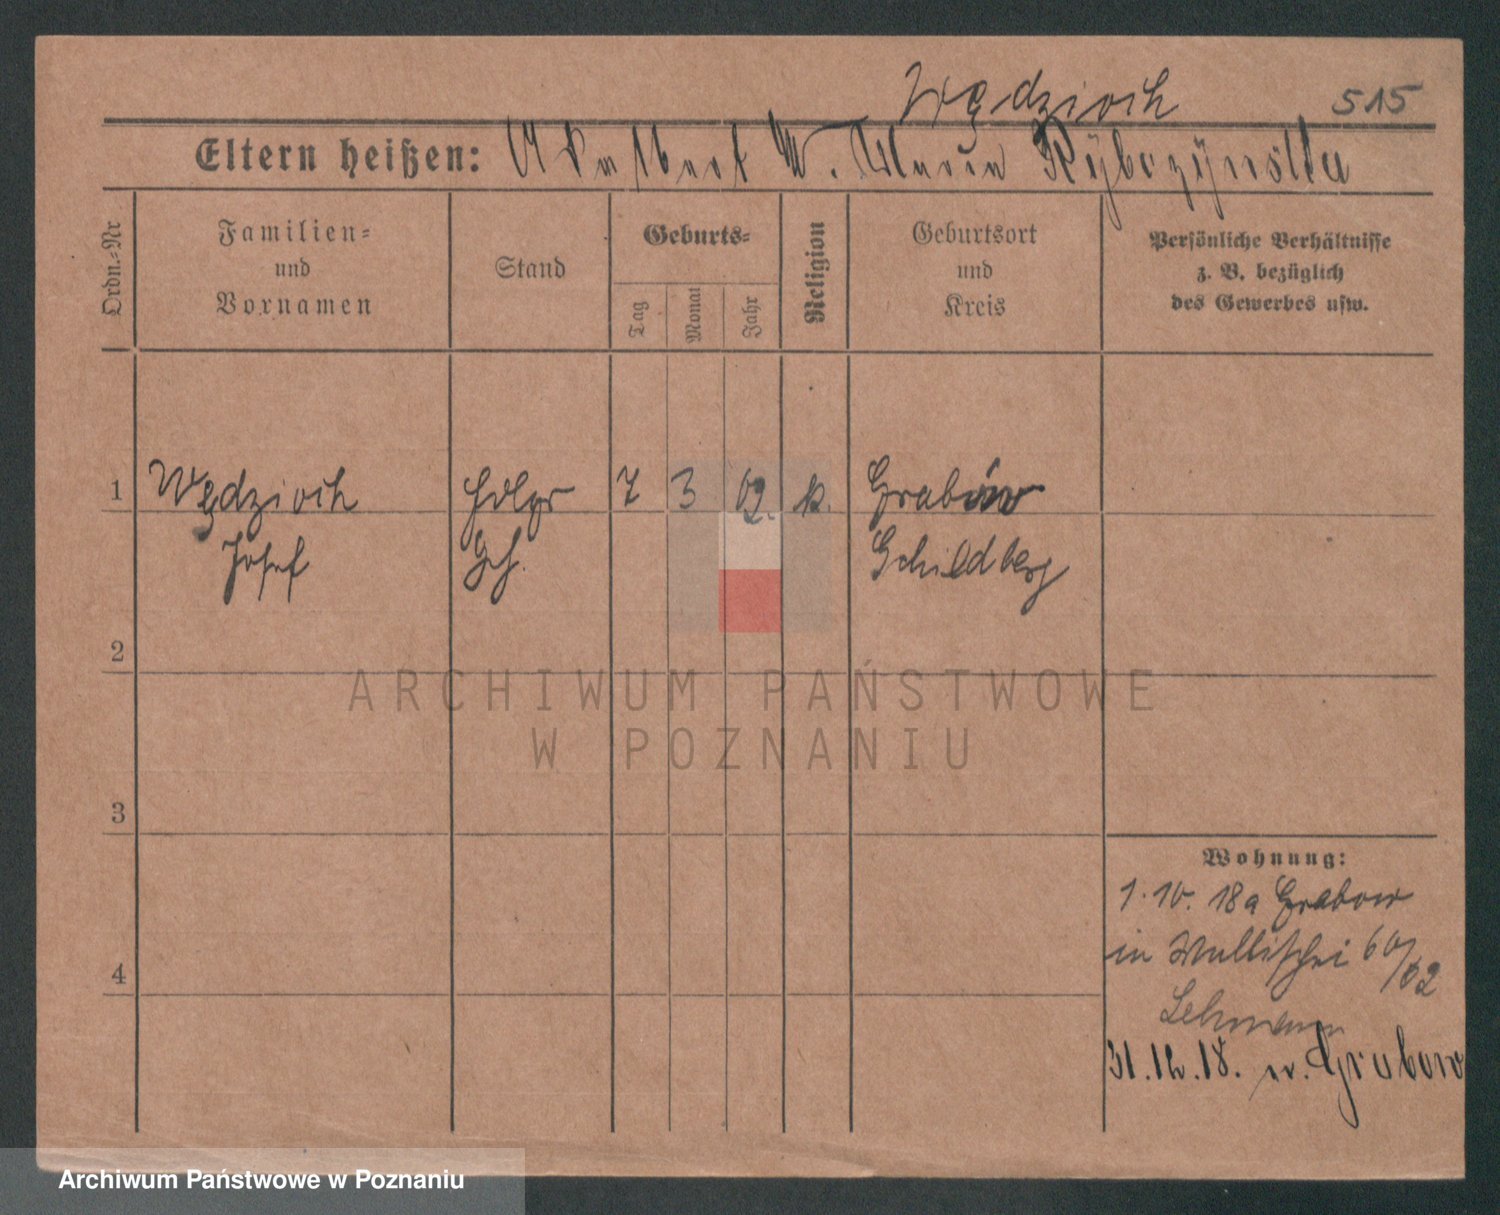 Wędzioch 515
Eltern heißen: Adalbert W. Maria Rybczynska
Ordn.-Nr
Familien-
und
Vornamen
Stand
Geburts-
Tag
Monat
Jahr
Religion
Geburtsort
und
Kreis
Persönliche Verhältnisse
z. B. bezüglich
des Gewerbes usw.
1 Wędzioch 7 3 02. k. Grabow
Josef Schildberg
2
ARCHIWUM PAŃSTWOWE
W POZNANIU
3
Wohnung:
1.10.18 a Grabow
in Wallischei 60/02
4
Lehmann
31.12.18. n. Grabow
Archiwum Państwowe w Poznaniu